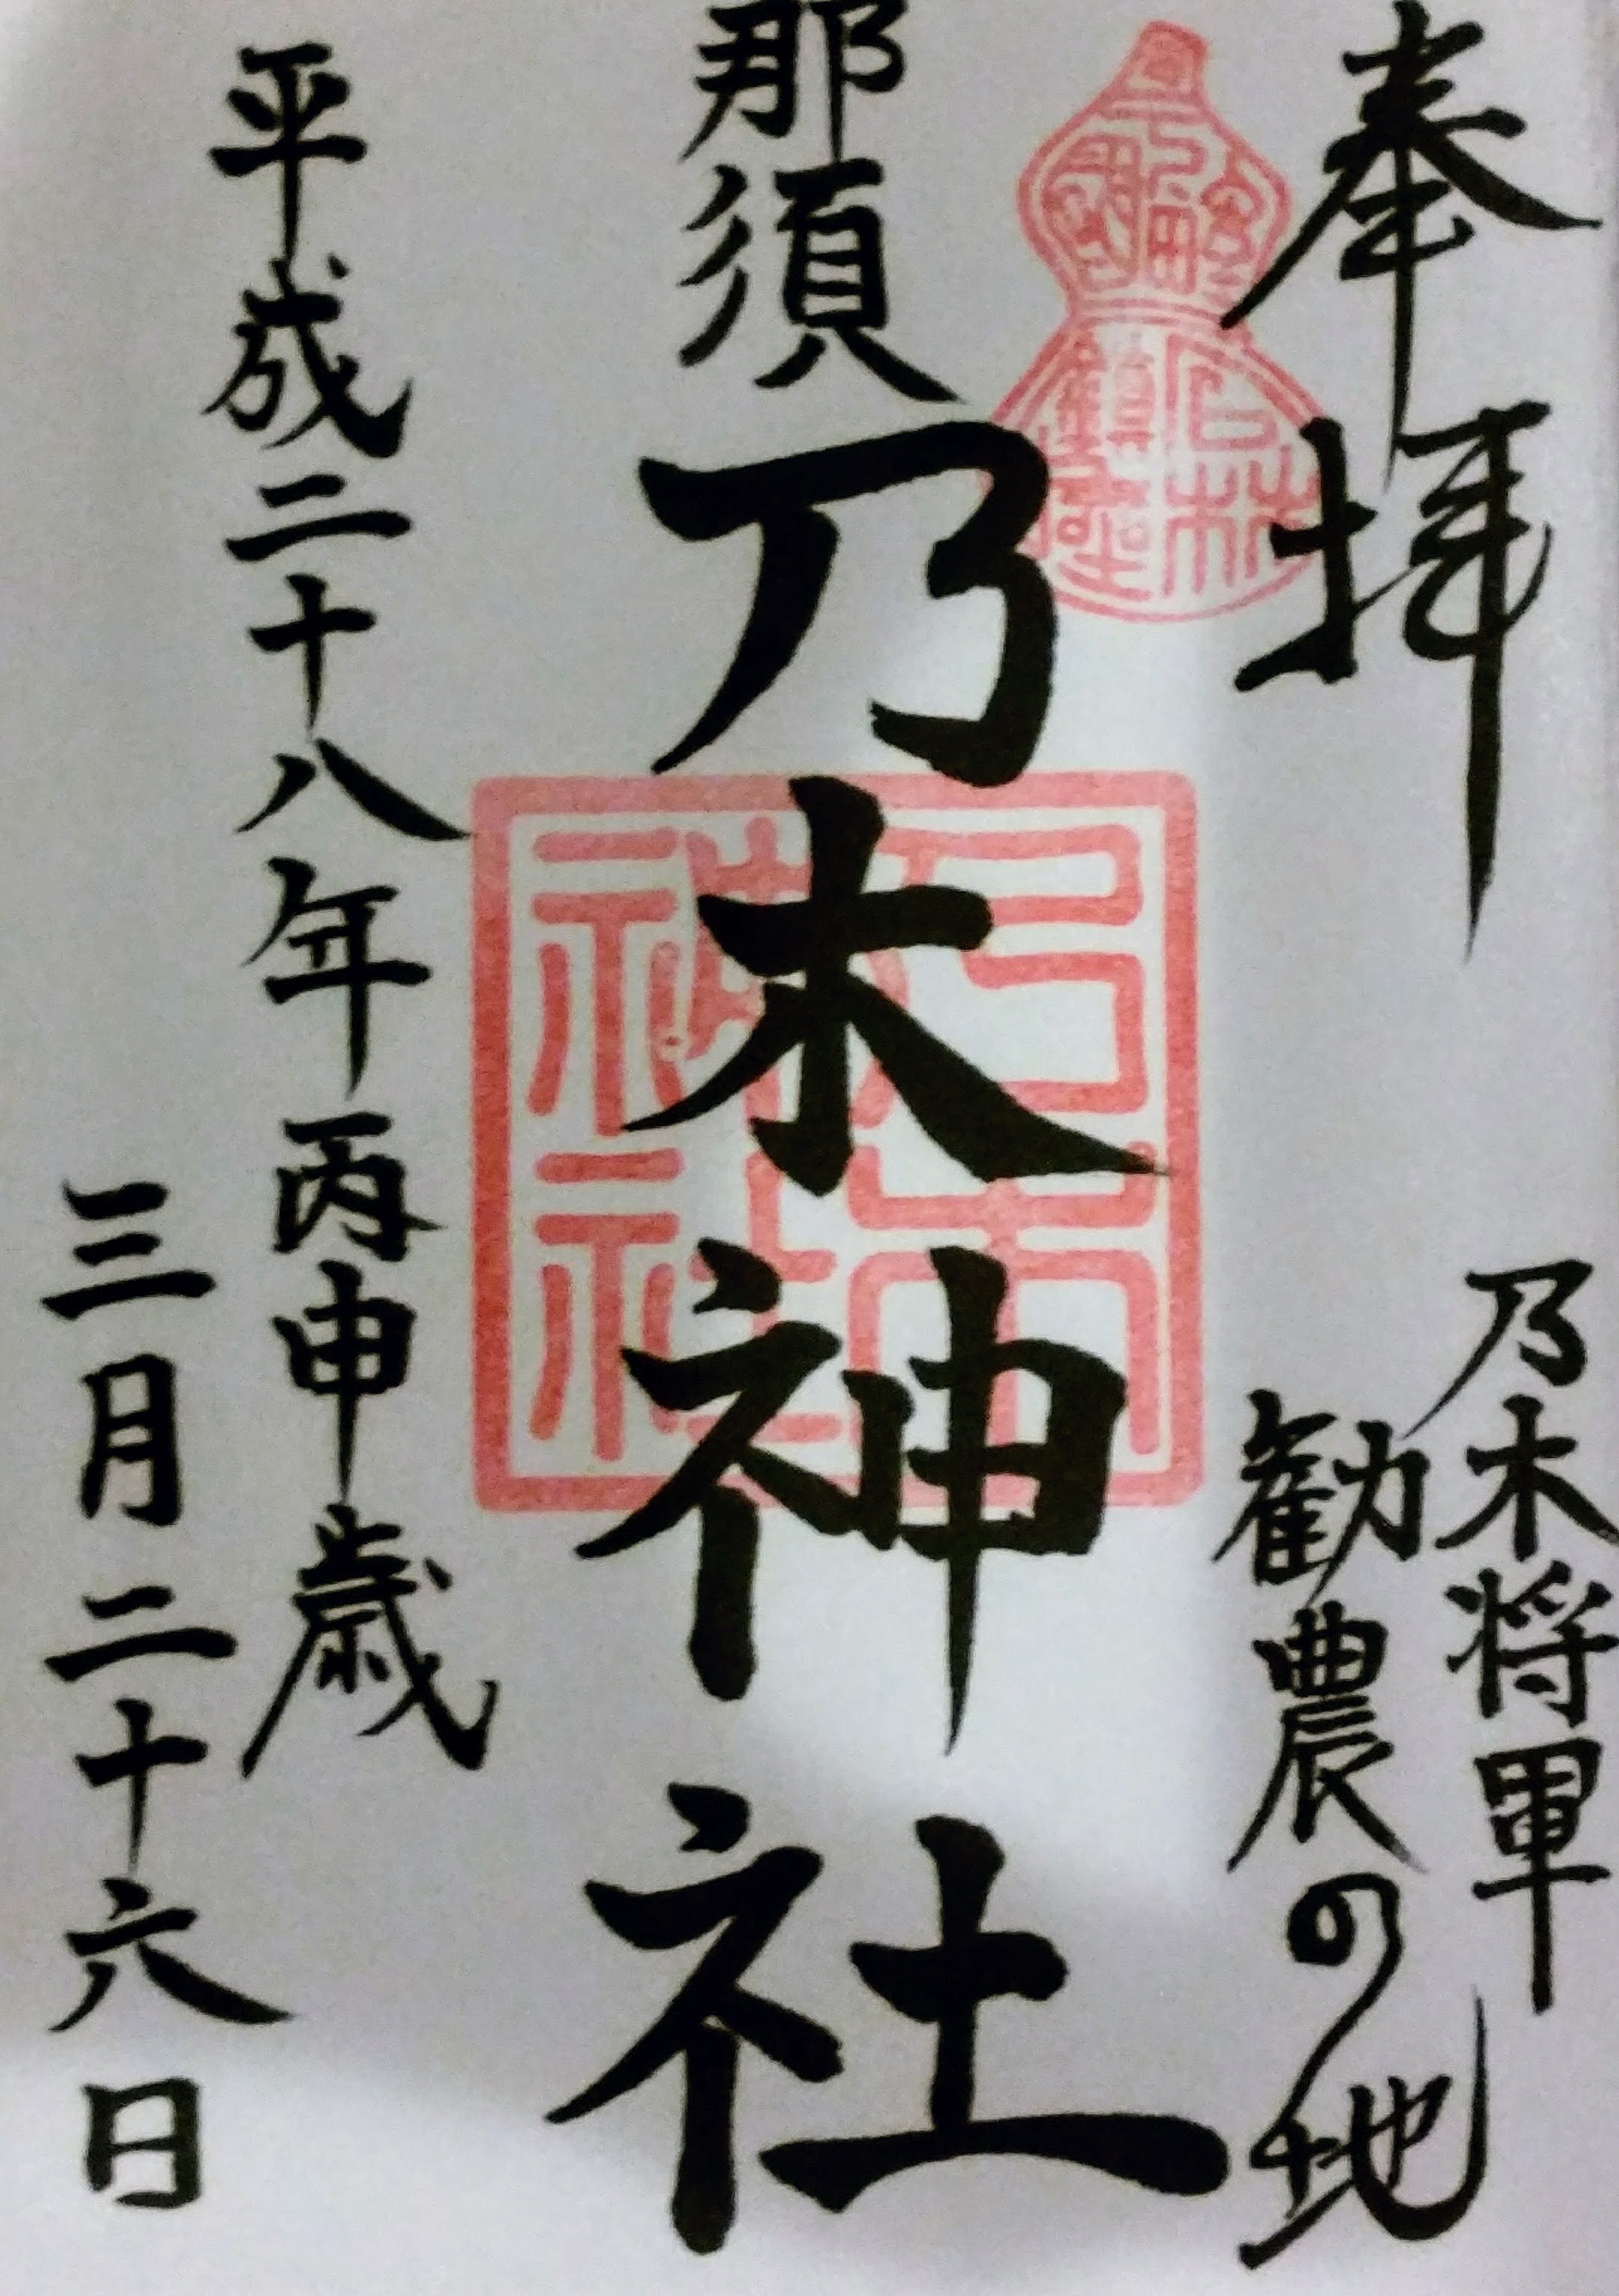 奉拝
乃木将軍
勧農の地
那須
乃木神社
乃木神社
平成二十八年丙申歳
三月二十六日